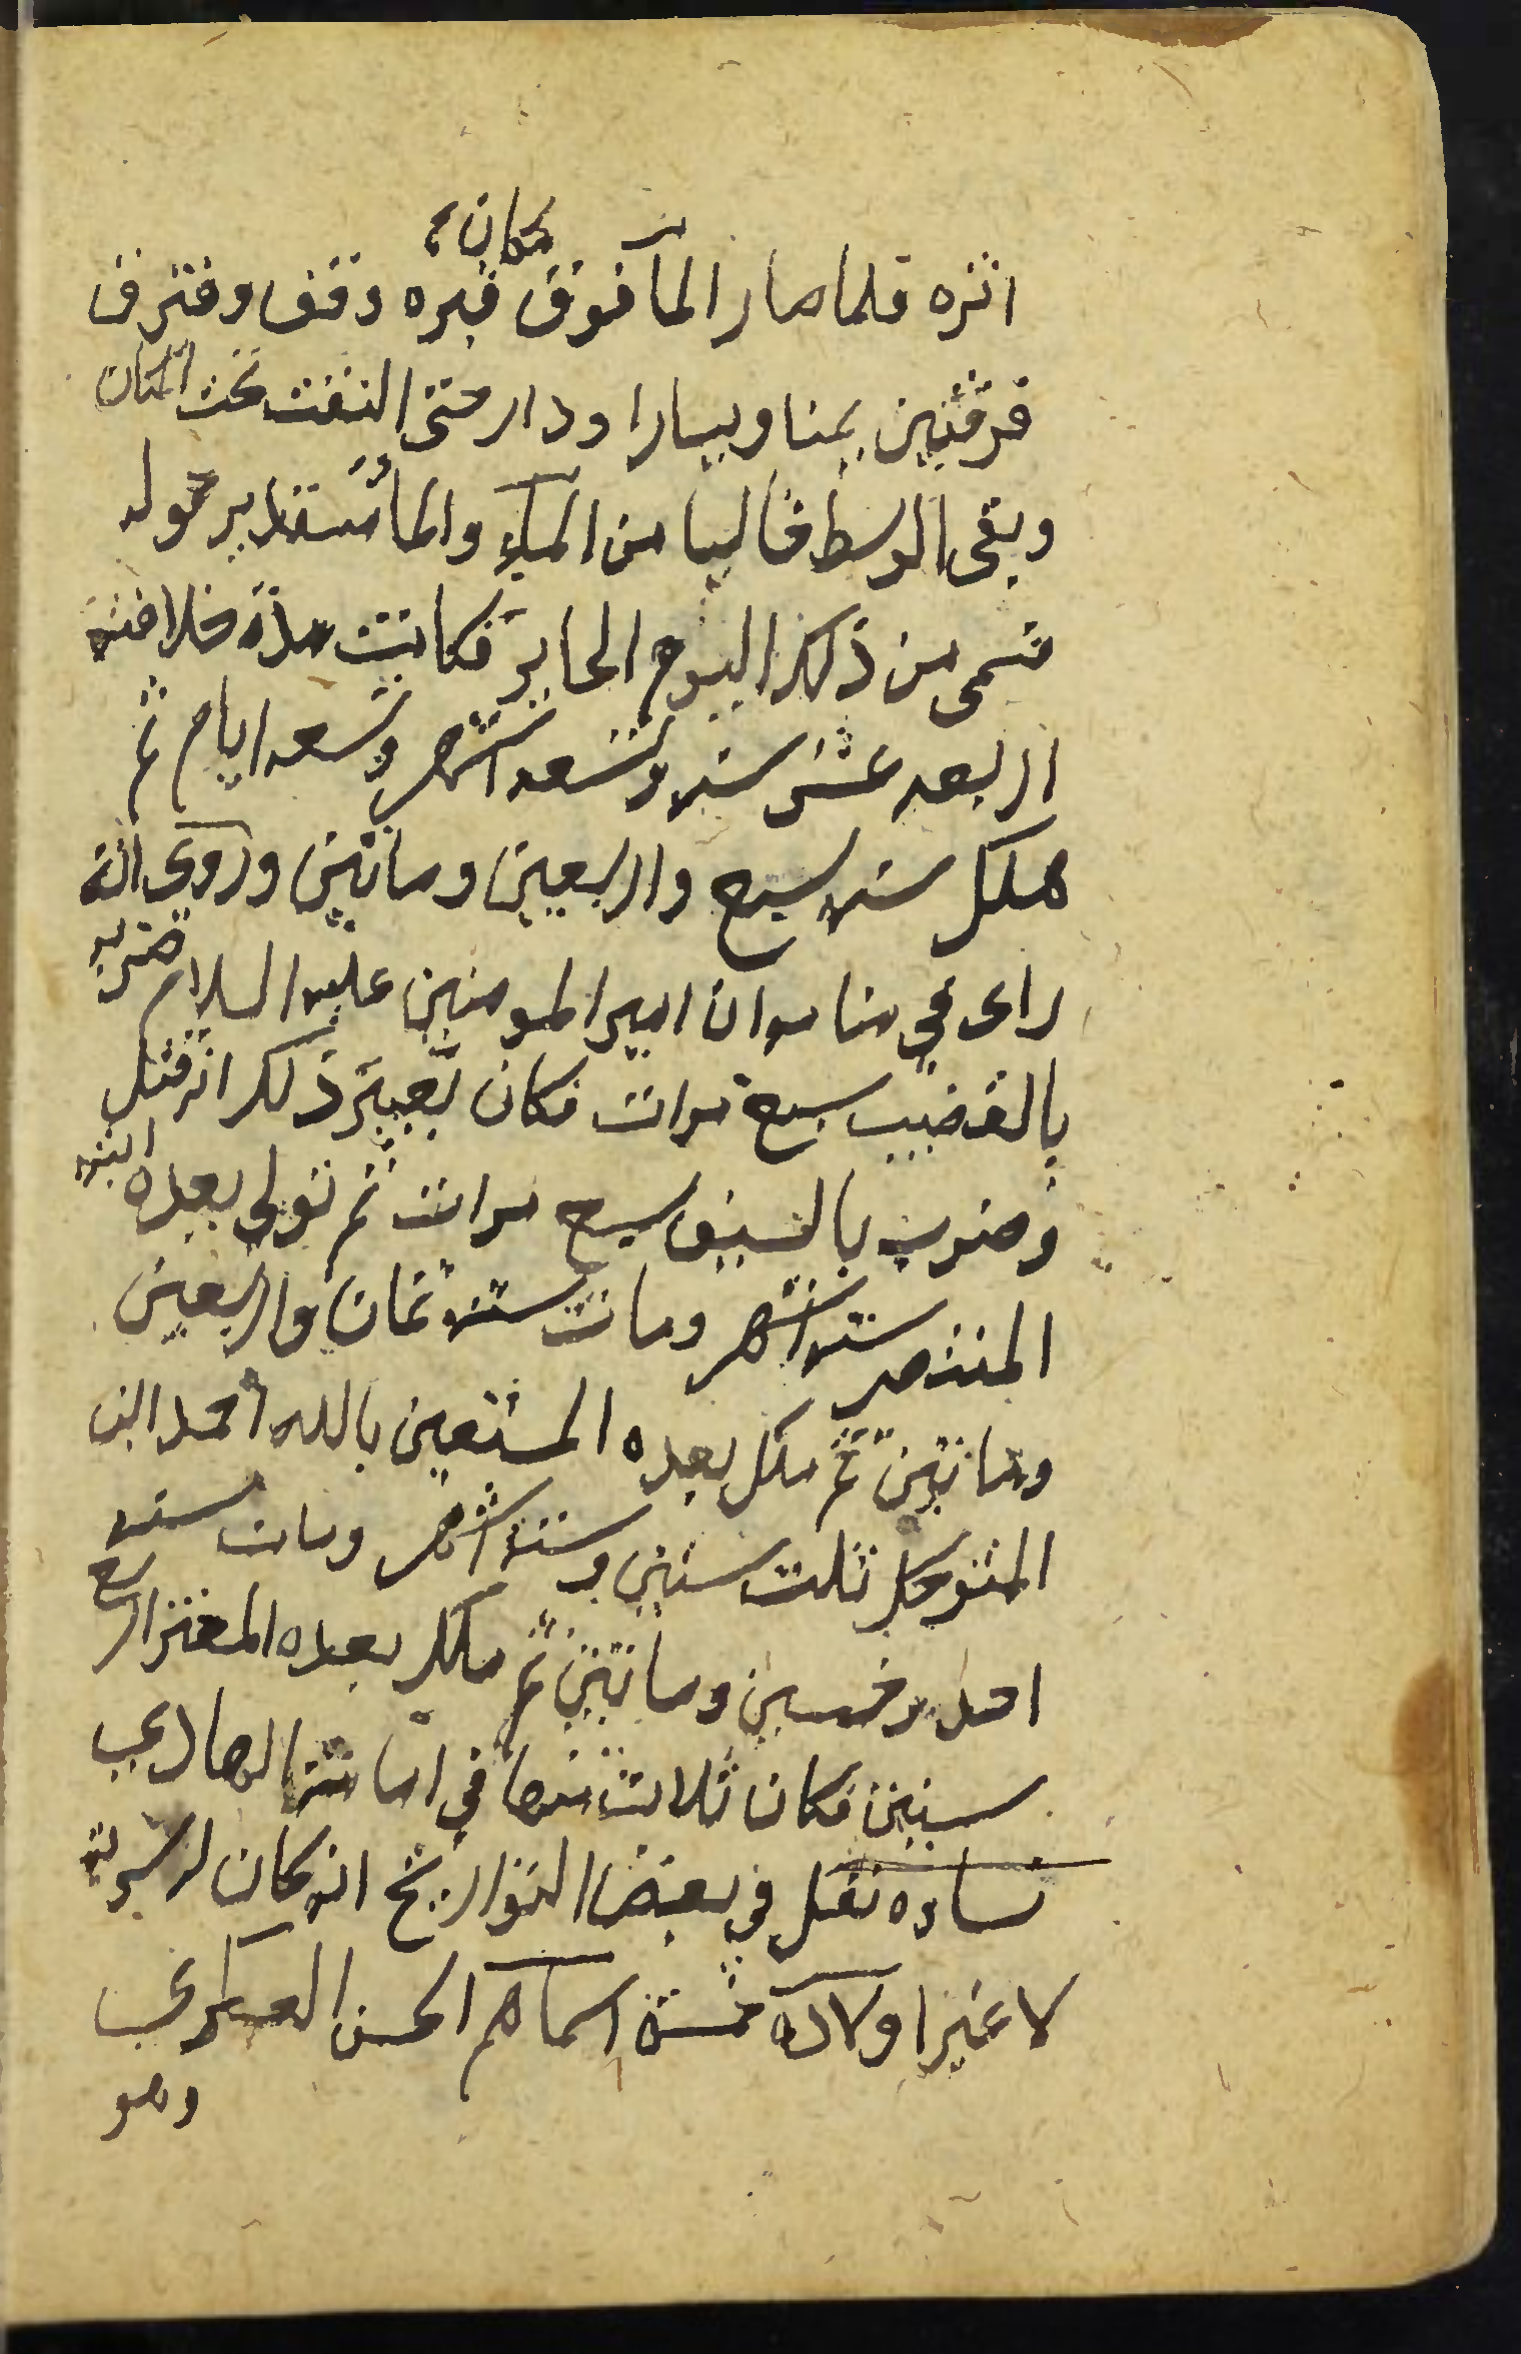 مكان
اثره فلما صار المآ فوق قبره وقف وفترق
فرقتين يمنا ويسارا ودار حتى التقت تحت المكان
وبقى الوسط خاليا من المآء والمآ مستدير حوله
فسمى من ذلك اليوم الحاير فكانت مدة خلافته
اربعه عشر سنه وتسعه اشهر وتسعه ايام ثم
هلك سنه سبع واربعين وماتين وروى انه
راى في منامه ان امير المومنين عليه السلام ضربه
بالقضيب سبع مرات فكان تعبير ذلك انه قتل
وضرب بالسيف سبع مرات ثم تولى بعده ابنه
المنتصر سته اشهر ومات سنه ثمان واربعين
وماتين ثم ملك بعده المستعين بالله احمد ابن
المتوكل ثلت سنين وستة اشهر ومات سنه
احد وخمسين وماتين ثم ملك بعده المعتز اربع
سنين فكان ثلاث منها في امامة الهادي
نساوه نقل في بعض التواريخ انه كان له سرية
لا غير اولاده خمسة اسماهم الحسن العسكري
وهو